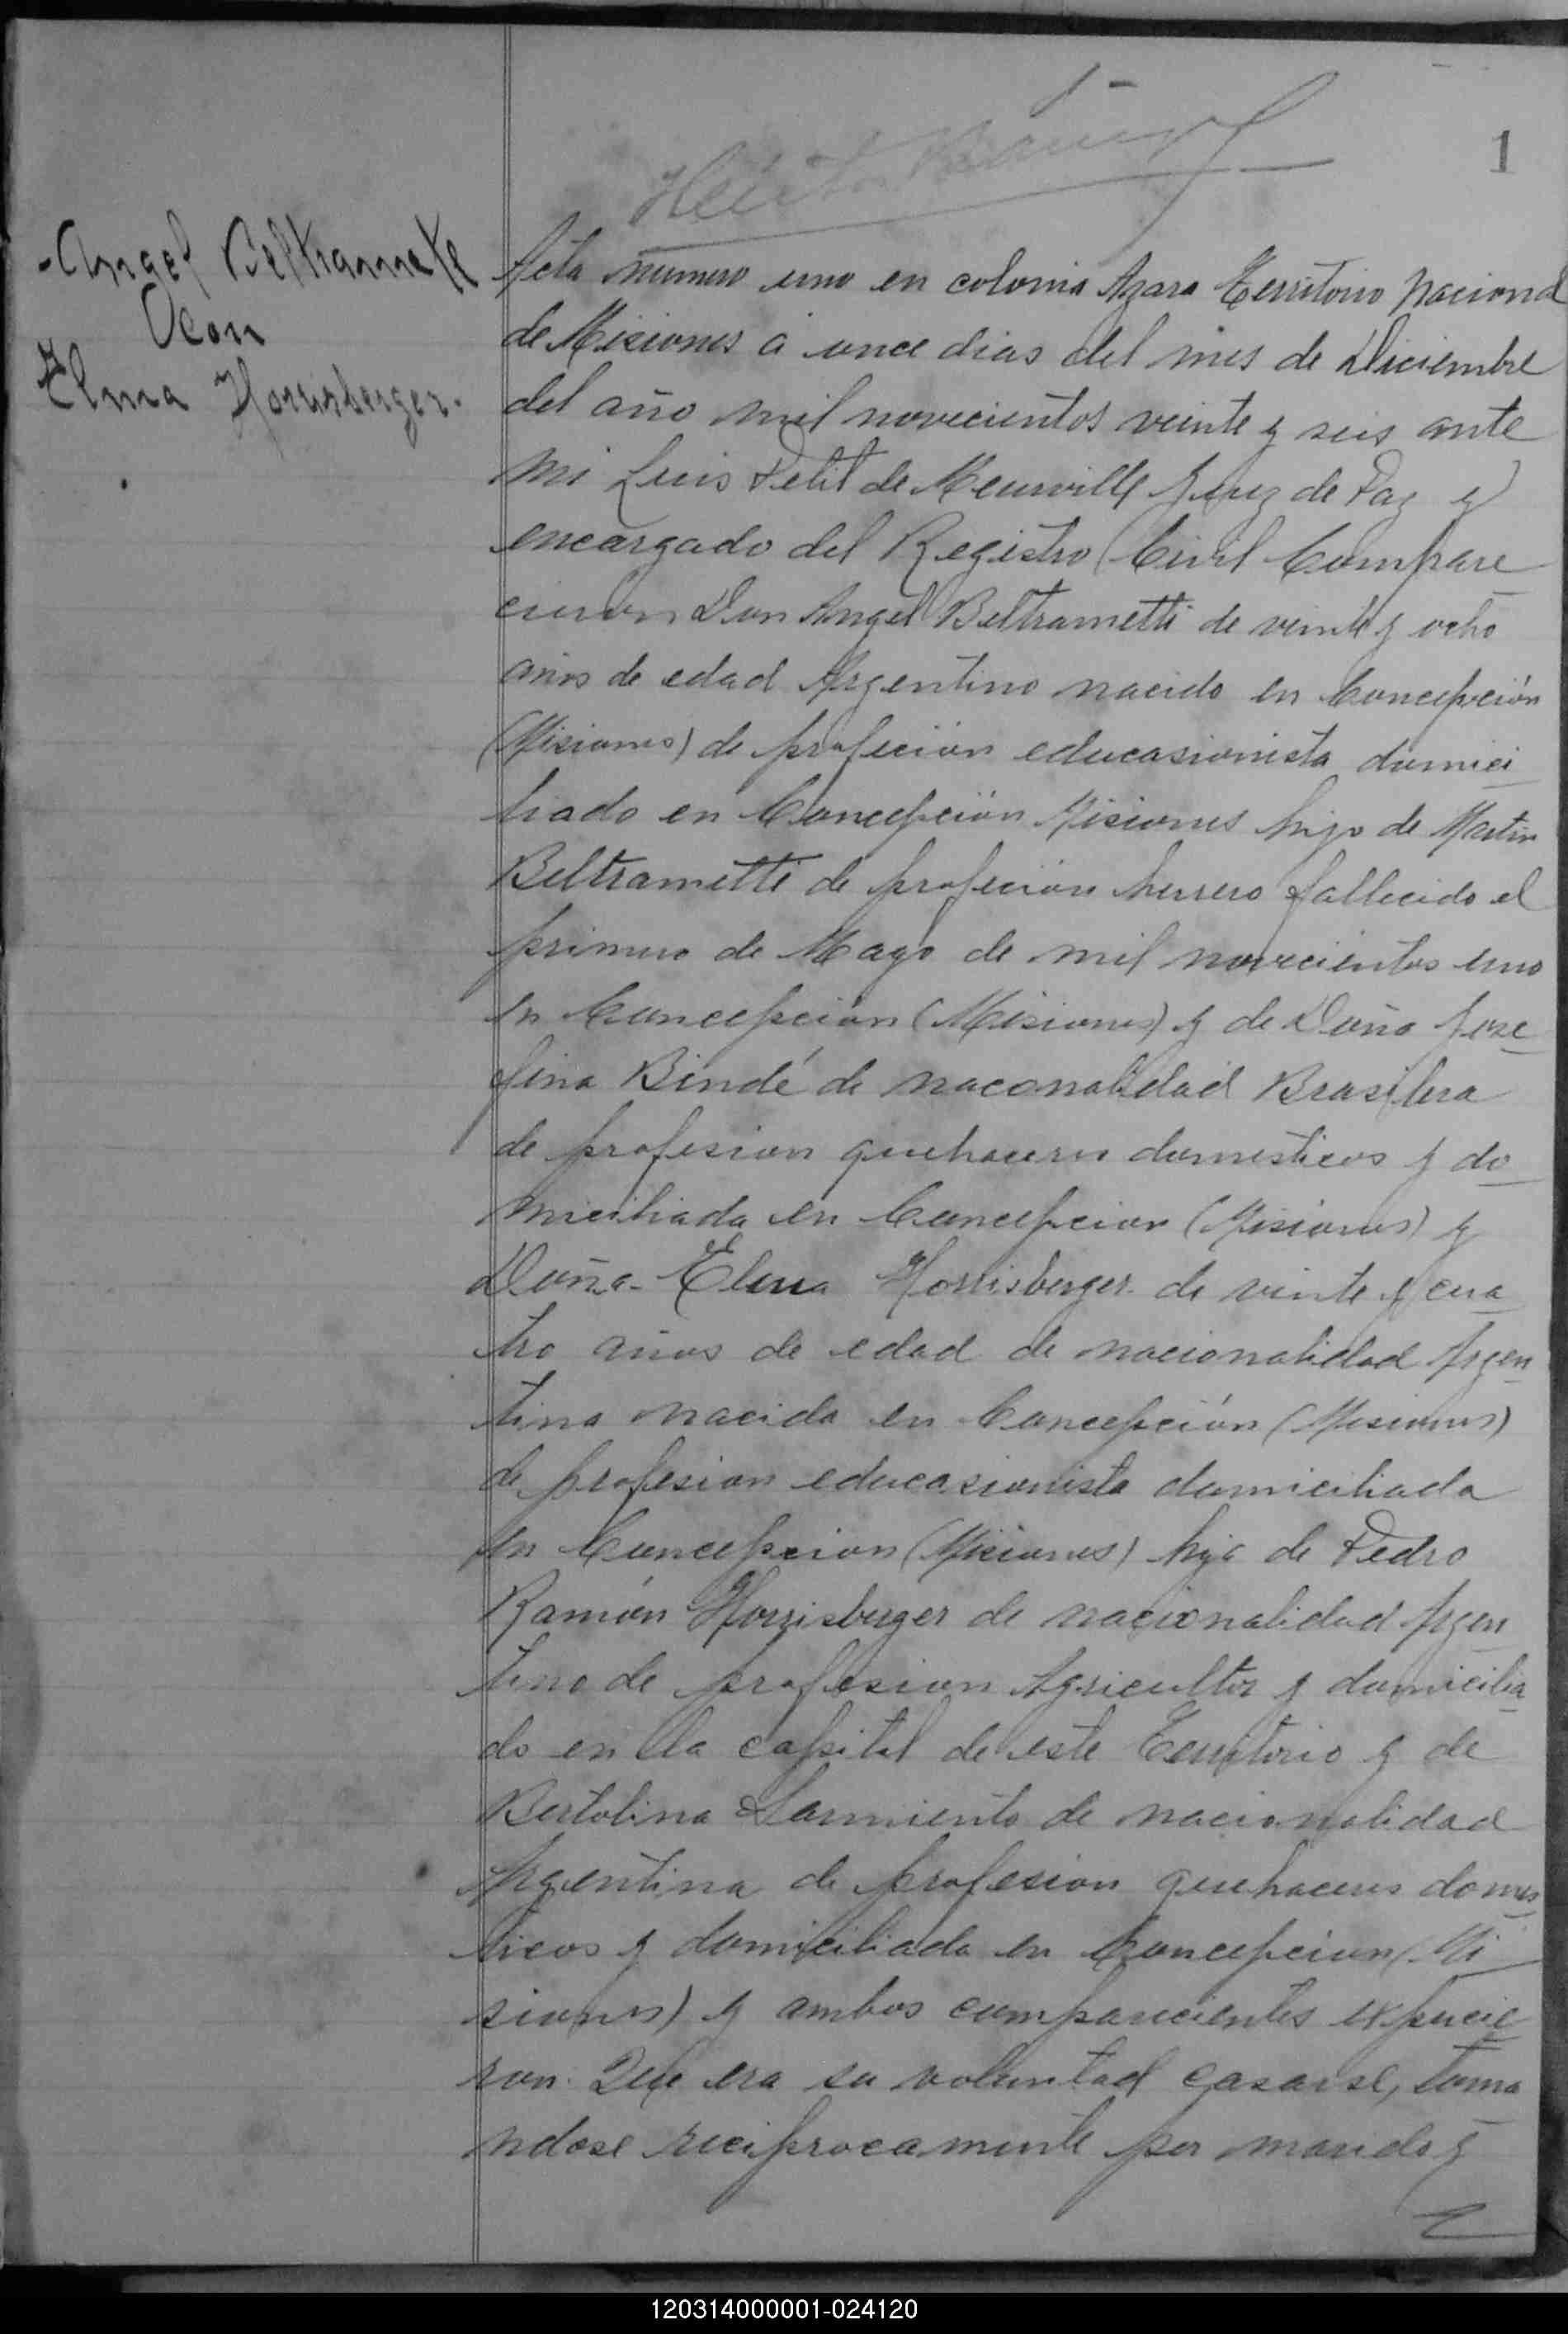 1
-Angel Beltramete
Con
Elma Horrisberger.
Acta numero uno en colonia Azara Territorio Nacional
de Misiones á once dias del mes de Diciembre
del año mil novecientos veinte y seis ante
mi Luis Petit de Meurville Juez de Paz y
encargado del Registro Civil Compare
cieron Don Angel Beltrametti de veinte y ocho
años de edad Argentino nacido en Concepción
(Misiones) de profeción educasionista domici
liado en Concepción Misiones hijo de Martin
Beltrametti de profeción herrero fallecido el
primero de Mayo de mil novecientos uno
en Concepción (Misiones) y de Doña Jose
fina Bindé de naconalidad Brasilera
de profesion quehaceres domesticos y do
miciliada en Concepcion (Misiones) y
Doña- Elma Horrisberger de veinte y cua
tro años de edad de nacionalidad Argen
tina nacida en Concepción (Misiones)
de profesion educasionista domiciliada
en Concepcion (Misiones) hija de Pedro
Ramón Horrisberger de nacionalidad Argen
tino de profesion Agricultor y domicilia
do en la capital de este Territorio y de
Bertolina Sarmiento de nacionalidad
Argentina de profesion quehaceres domes
ticos y domiciliada en Concepcion (Mi
siones) y ambos comparecientes expucie
ron. Que era su voluntad casarse, toma
ndose reciprocamente por marido y
120314000001-024120